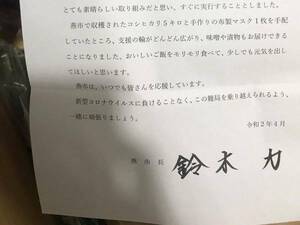 とても素晴らしい取り組みだと思い、すぐに実行することとしました。
燕市で収穫されたコシヒカリ5キロと手作りの布製マスク1枚を手配
していたところ、支援の輪がどんどん広がり、味噌や漬物もお届けできる
ことになりました。おいしいご飯をモリモリ食べて、少しでも元気を出して
ほしいと思います。
燕市は、いつでも皆さんを応援しています。
新型コロナウイルスに負けることなく、この難局を乗り越えられるよう、
一緒に頑張りましょう。
令和2年4月
燕市長 鈴木力